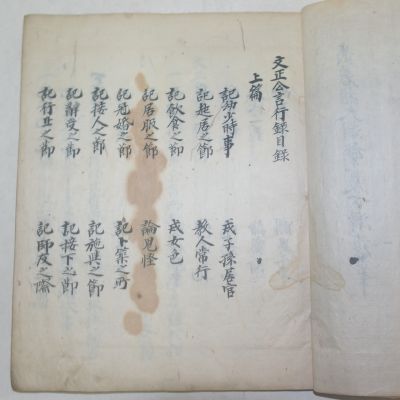 文正公言行錄目錄
上篇
記幼少時事 戒子孫居官
記起居之節 教人常行
記飲食之節 戒女色
記居服之節 論見怪
記冠婚之節 記卜築之所
記接人之節 記施與之節
記辭受之節 記接下之節
記行之節 記師友之際